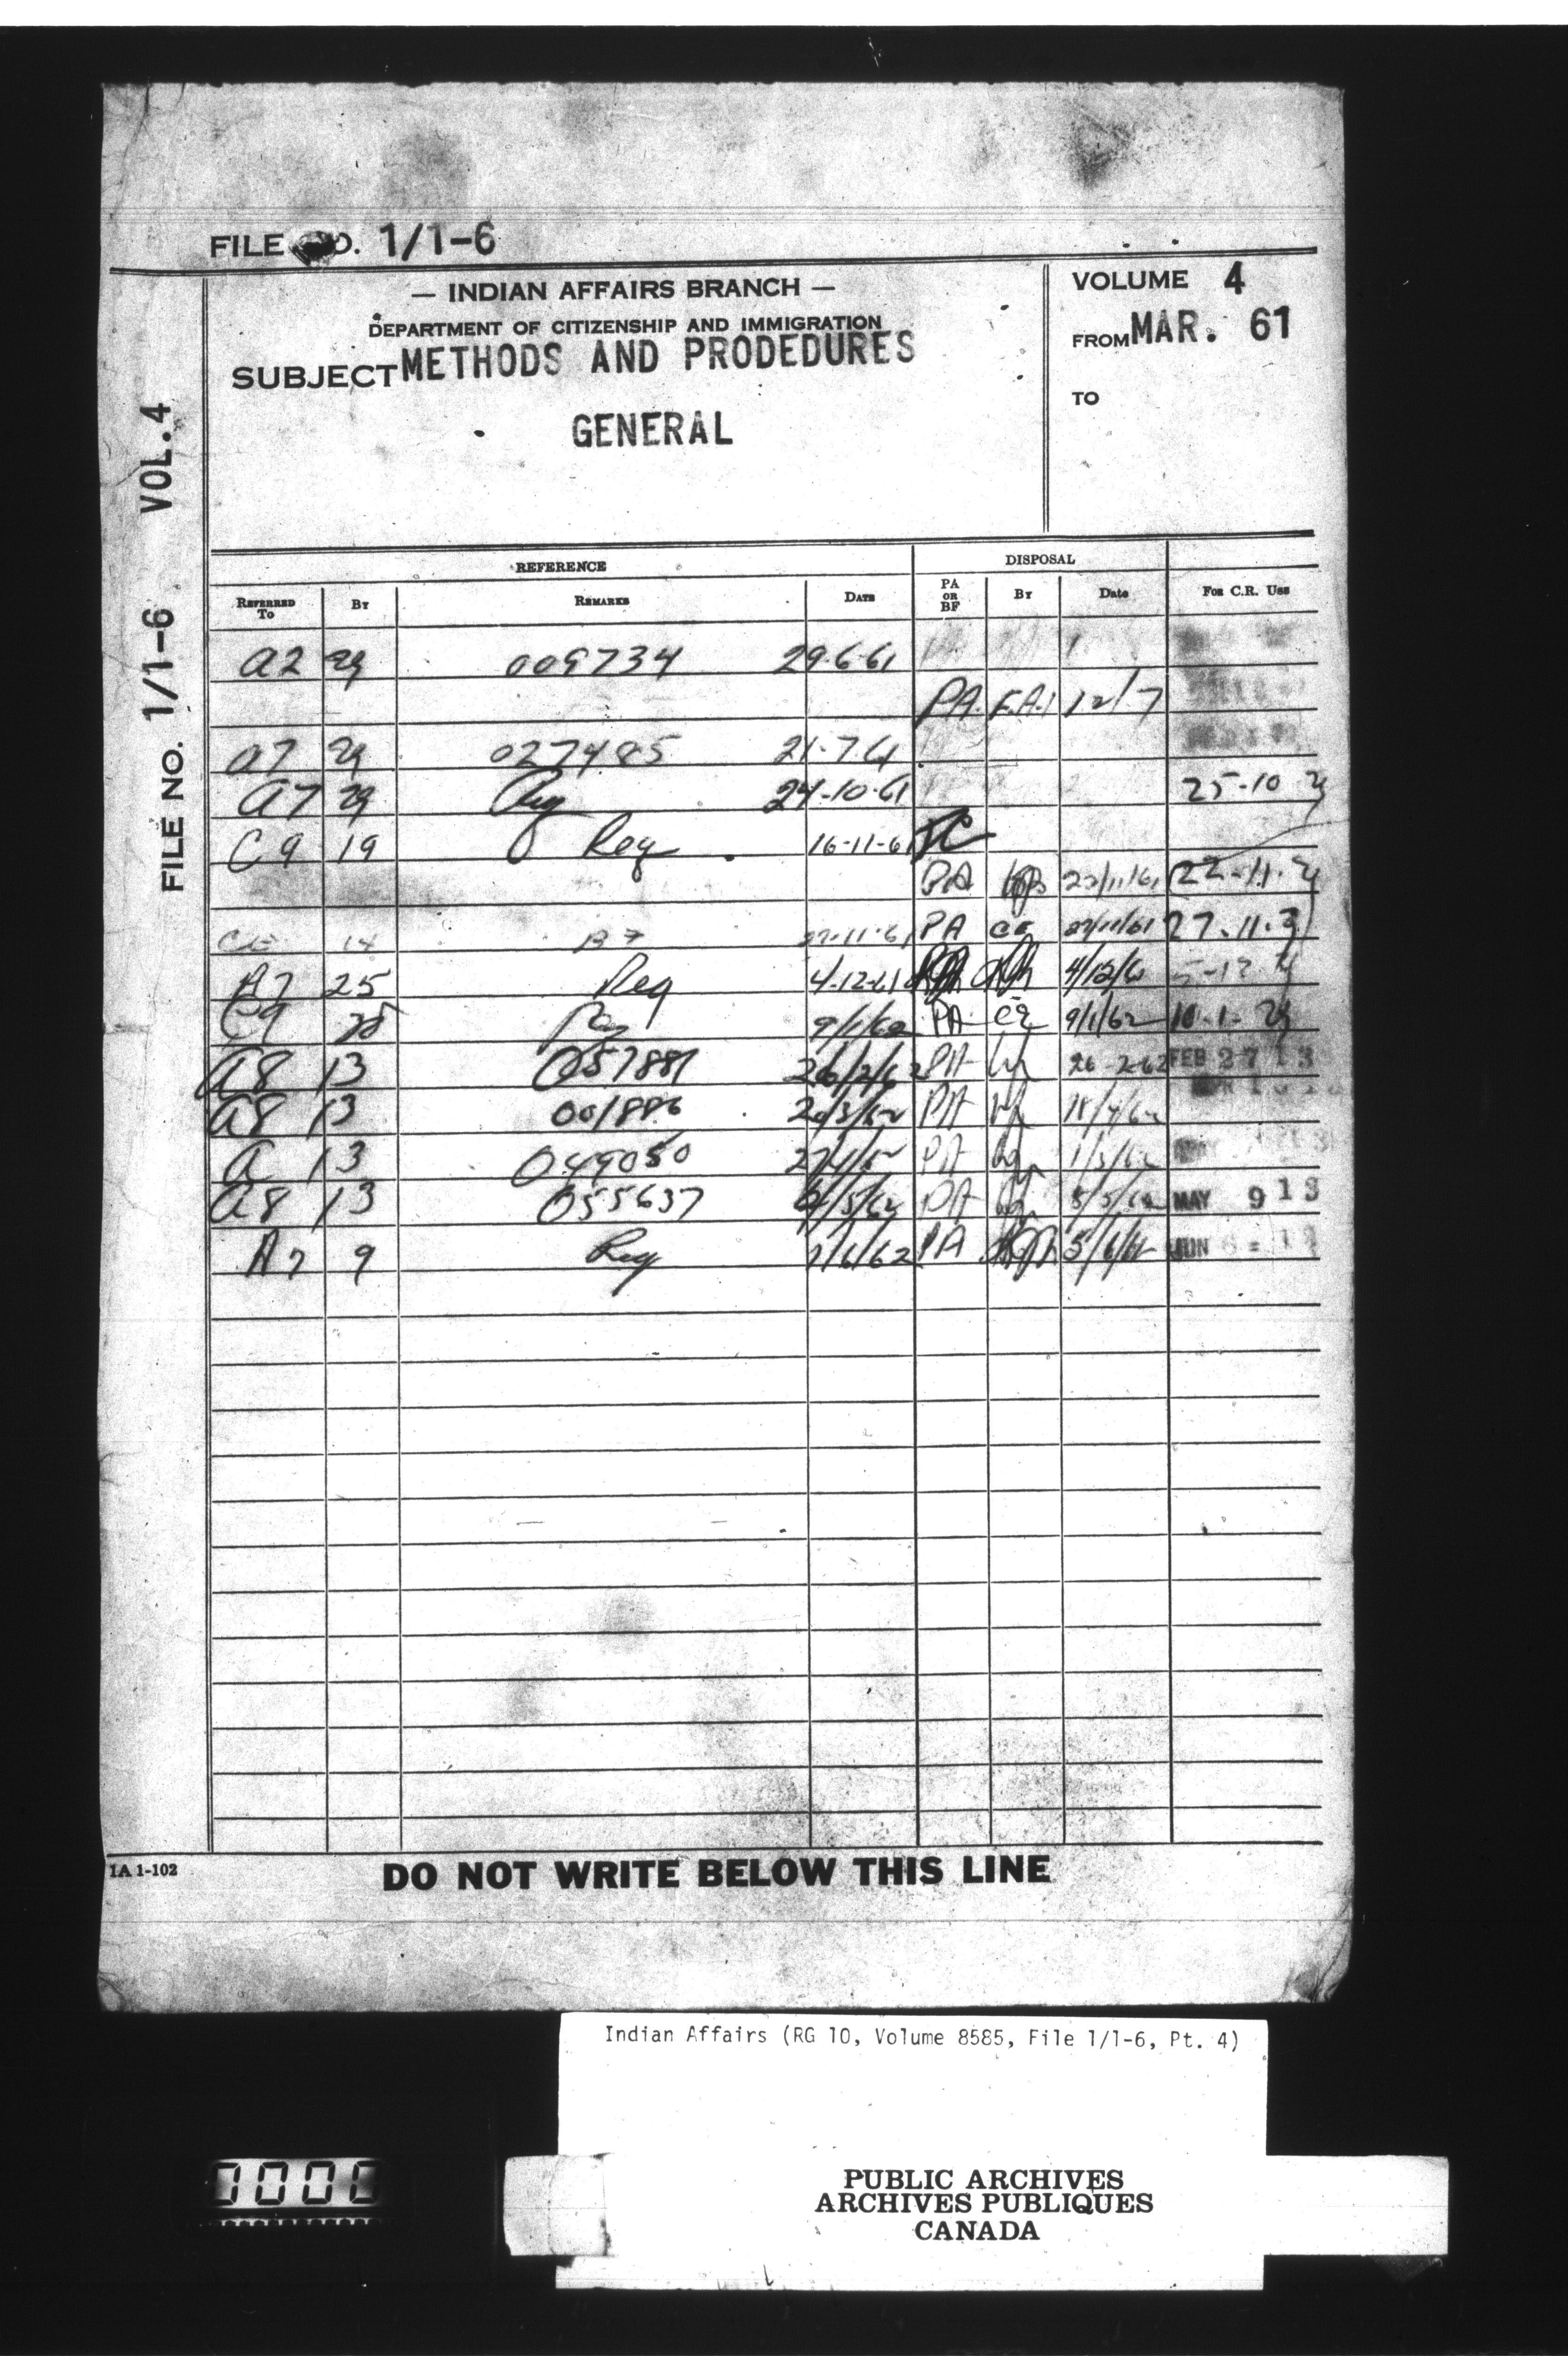 FILE NO. 1/1-6
— INDIAN AFFAIRS BRANCH —
DEPARTMENT OF CITIZENSHIP AND IMMIGRATION
SUBJECT METHODS AND PRODEDURES
GENERAL
VOLUME 4
FROM MAR. 61
TO
FILE NO. 1/1-6 VOL. 4
REFERENCE DISPOSAL
REFERRED TO BY REMARKS DATE PA OR BF BY Date FOR C.R. USE
A2 29 009734 29-6-61
PA. F.A.1 12/7
A7 29 027485 21-7-61
A7 29 Req 24-10-61 25-10
C9 19 Req 16-11-61
PA 22/11/61 22-11-
14 27-11-61 PA 27/11/61 27.11.
A7 25 Req 4-12-61 4/12/6
C9 9/1/62 PA 9/1/62 10-1-
A8 13 057881 26/2/62 PA 26-2-62 FEB 27 13
A8 13 001886 PA
A 13 049050 PA
A8 13 055637 PA MAY 9 13
A7 9 Req 1/6/62 PA 5/6/62 JUN
IA 1-102
DO NOT WRITE BELOW THIS LINE
Indian Affairs (RG 10, Volume 8585, File 1/1-6, Pt. 4)
0000
PUBLIC ARCHIVES
ARCHIVES PUBLIQUES
CANADA